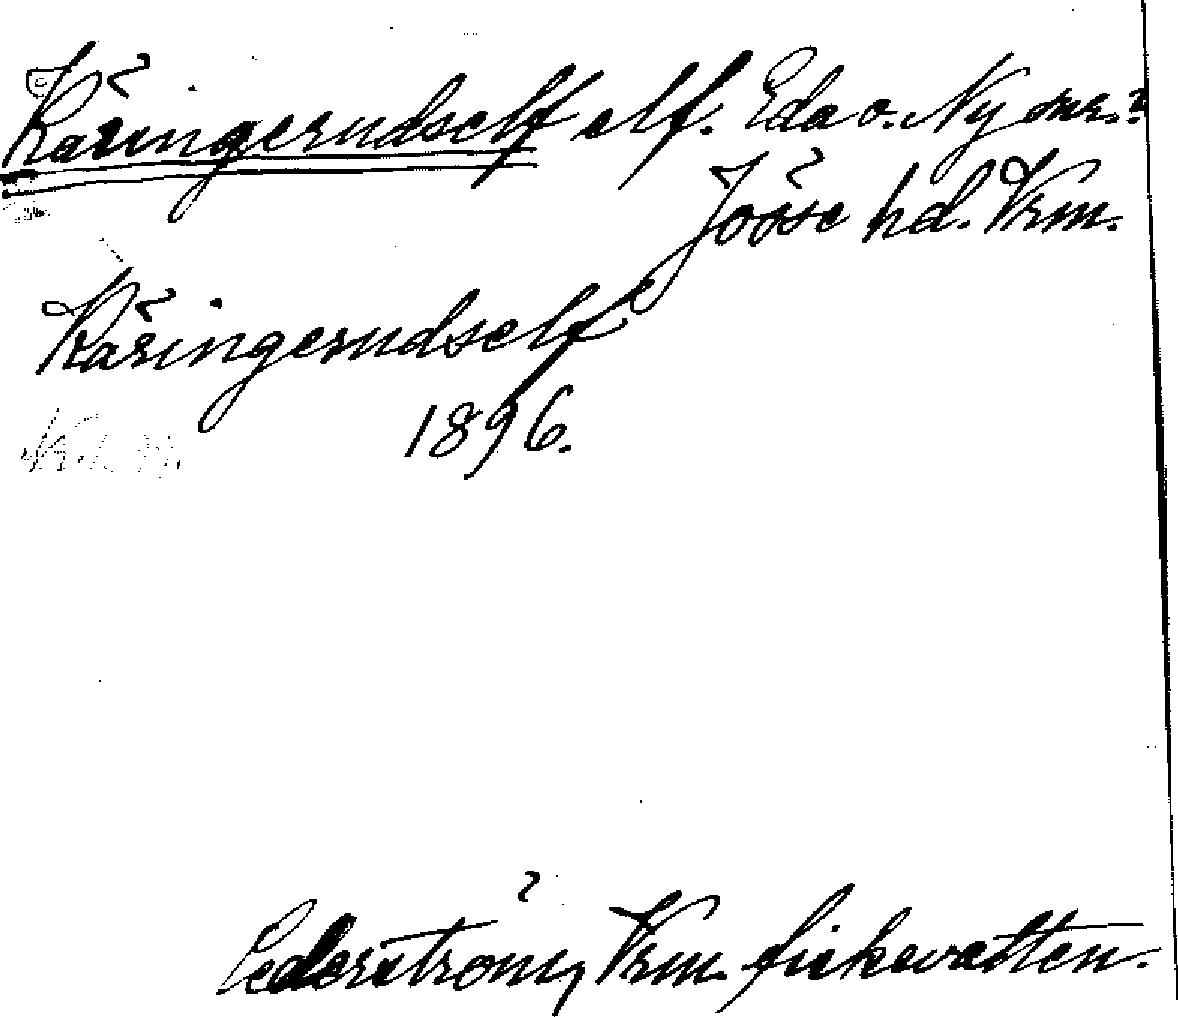 Käringerudself elf. Eda o. Ny snr.?
Jösse hd. Vrm.
Käringerudself
1896.
Cederström, Vrm. fiskevatten.